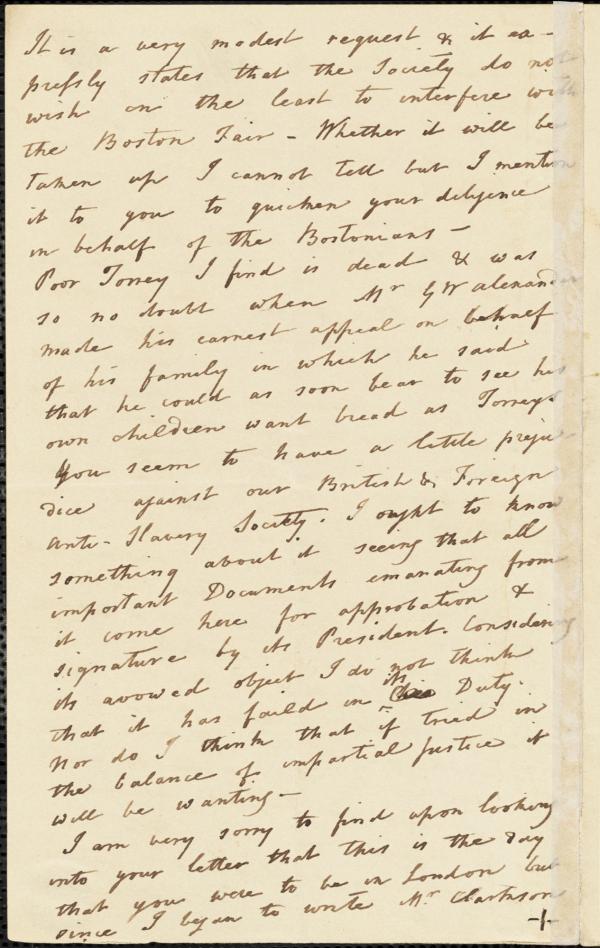 It is a very modest request & it ex-
pressly states that the Society do not
wish in the least to interfere with
the Boston Fair - Whether it will be
taken up I cannot tell but I mention
it to you to quicken your diligence
in behalf of the Bostonians -
Poor Torrey I find is dead & was
so no doubt when Mr G W alexander
made his earnest appeal on behalf
of his family in which he said
that he could as soon bear to see his
own children want bread as Torreys
You seem to have a little preju-
dice against our British & Foreign
Anti-Slavery Society. I ought to know
something about it seeing that all
important Documents emanating from
it come here for approbation &
signature by its President. Considering
its avowed object I do not think
that it has faild in its Duty.
Nor do I think that if tried in
the balance of impartial Justice it
will be wanting -
I am very sorry to find upon looking
into your letter that this is the day
that you were to be in London but
since I began to write Mr Clarkson